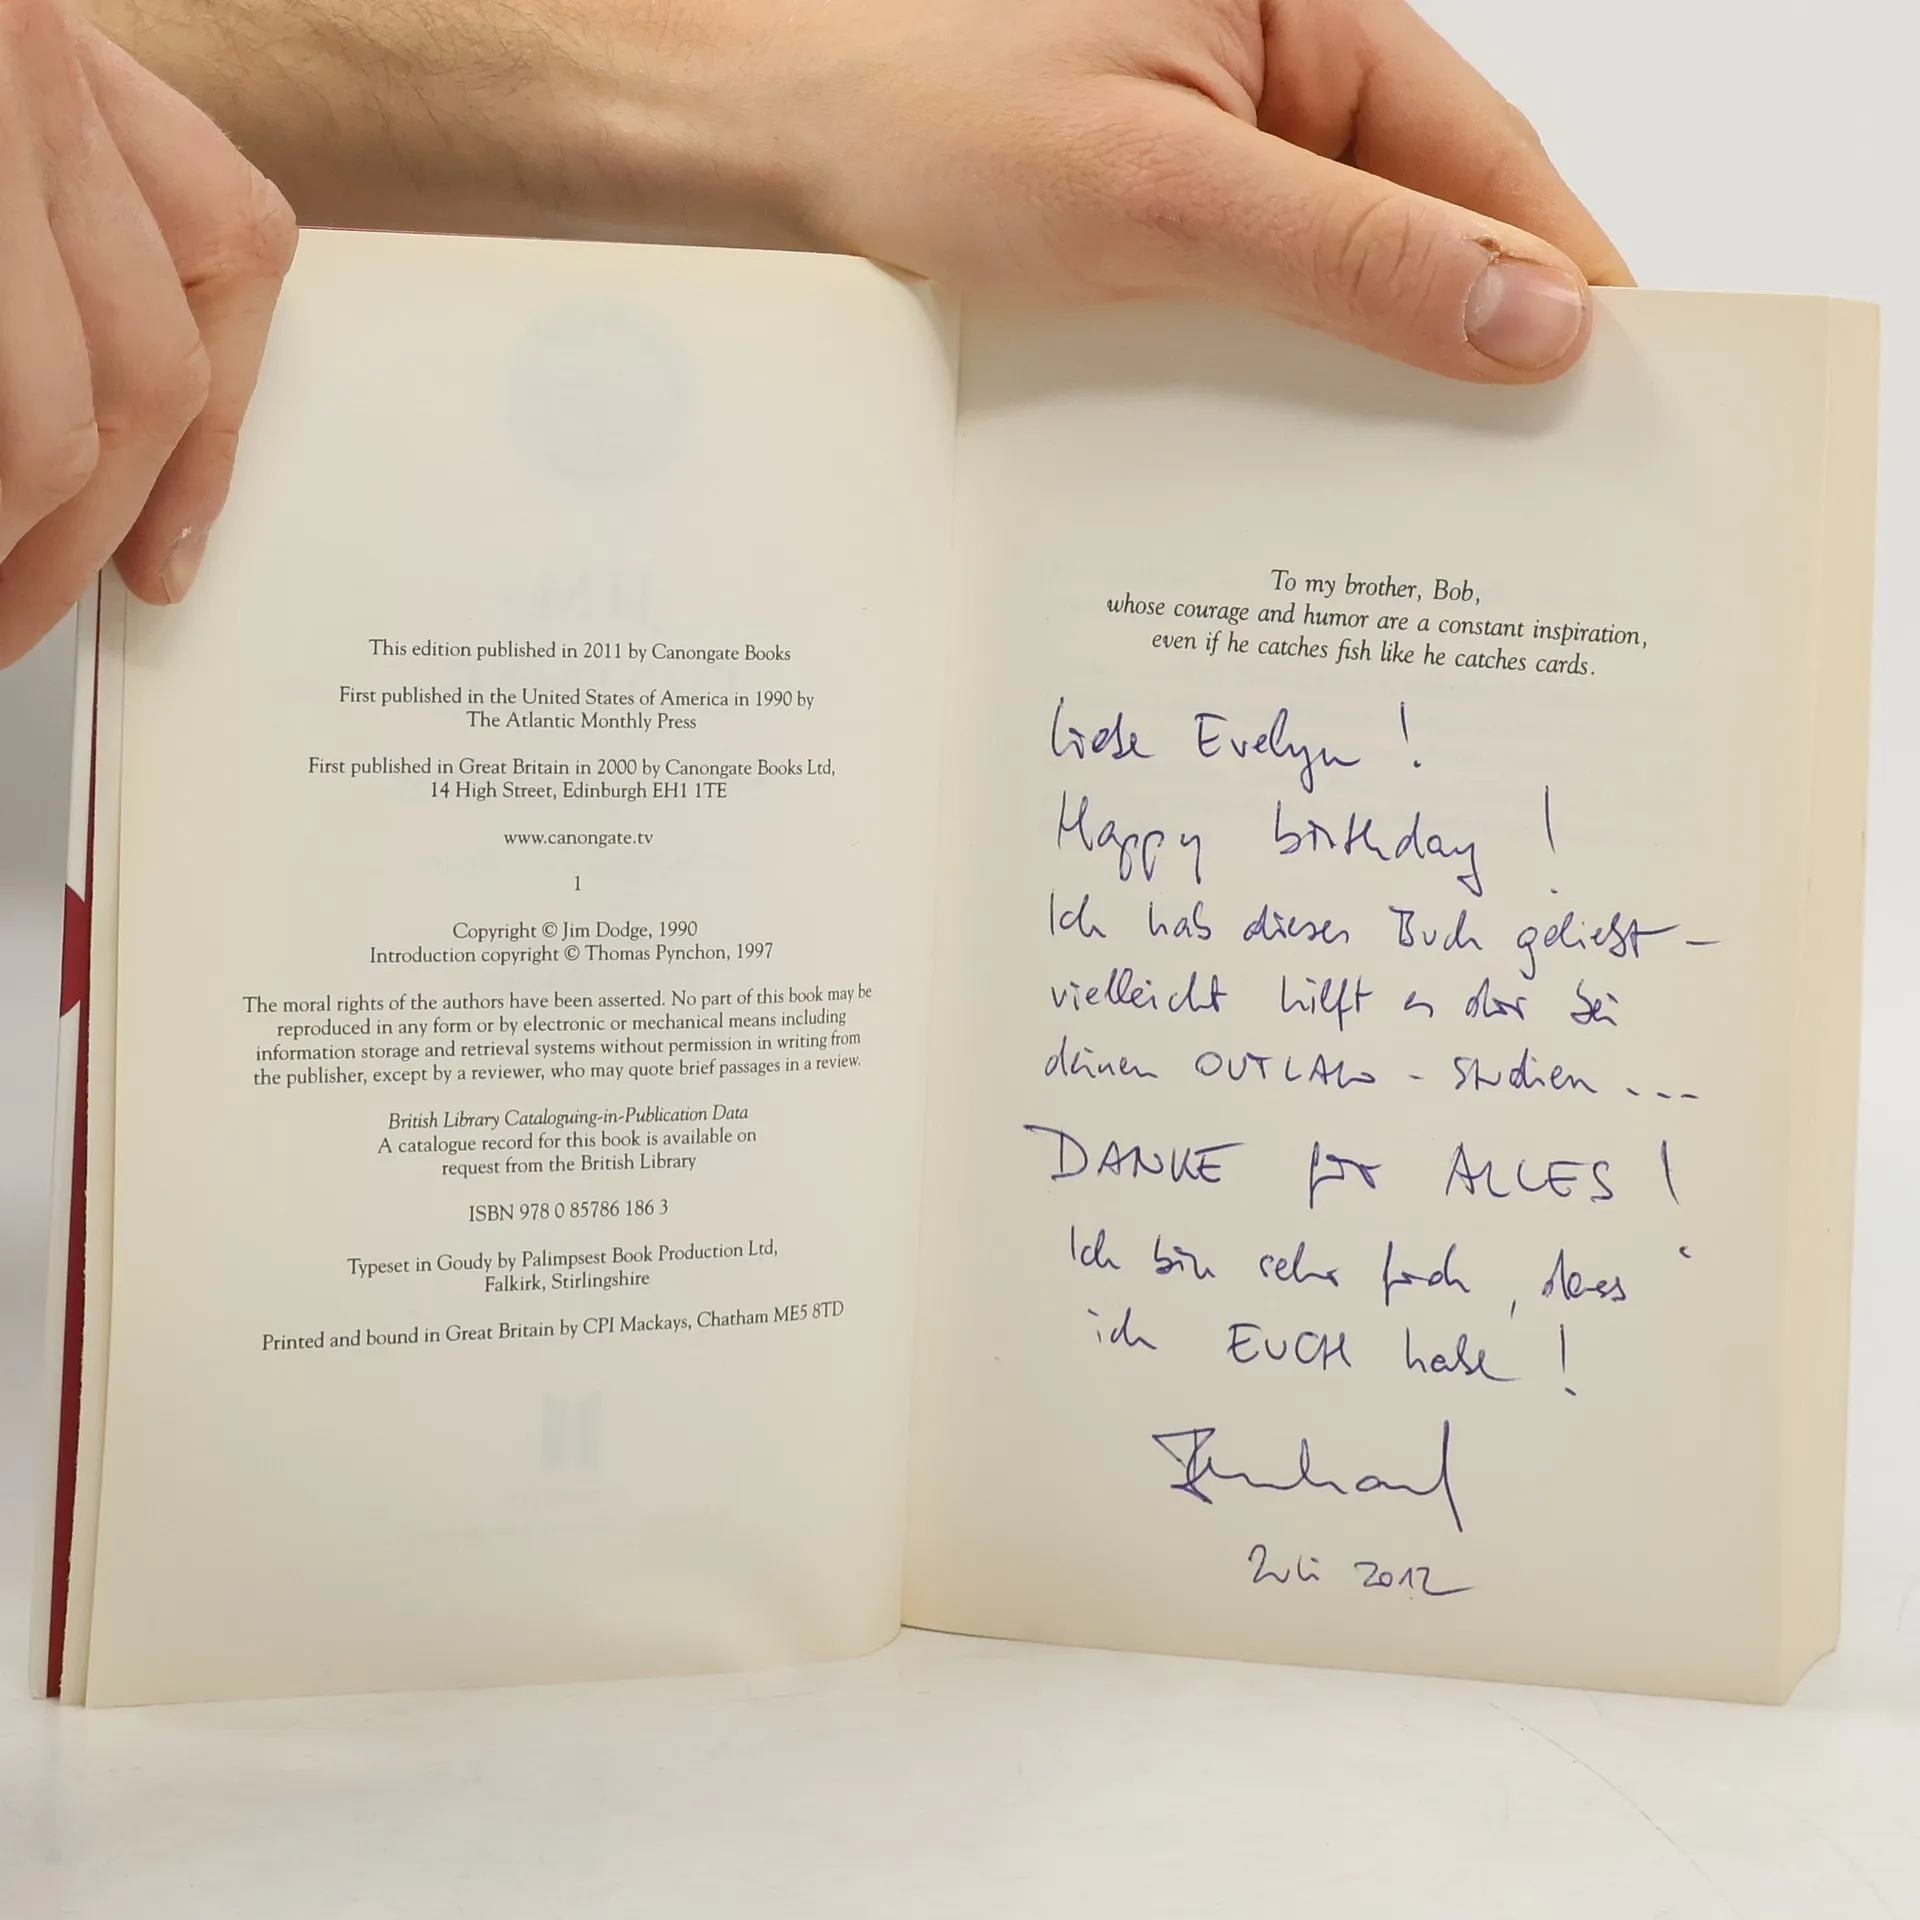 This edition published in 2011 by Canongate Books
First published in the United States of America in 1990 by
The Atlantic Monthly Press
First published in Great Britain in 2000 by Canongate Books Ltd,
14 High Street, Edinburgh EH1 1TE
www.canongate.tv
1
Copyright © Jim Dodge, 1990
Introduction copyright © Thomas Pynchon, 1997
The moral rights of the authors have been asserted. No part of this book may be
reproduced in any form or by electronic or mechanical means including
information storage and retrieval systems without permission in writing from
the publisher, except by a reviewer, who may quote brief passages in a review.
British Library Cataloguing-in-Publication Data
A catalogue record for this book is available on
request from the British Library
ISBN 978 0 85786 186 3
Typeset in Goudy by Palimpsest Book Production Ltd,
Falkirk, Stirlingshire
Printed and bound in Great Britain by CPI Mackays, Chatham ME5 8TD
To my brother, Bob,
whose courage and humor are a constant inspiration,
even if he catches fish like he catches cards.
Liebe Evelyn !
Happy birthday !
Ich hab dieses Buch geliebt –
vielleicht hilft es dir bei
deinen OUTLAW - Studien ...
DANKE für ALLES !
Ich bin sehr froh, dass
ich EUCH habe !
Bernhard
Juli 2012